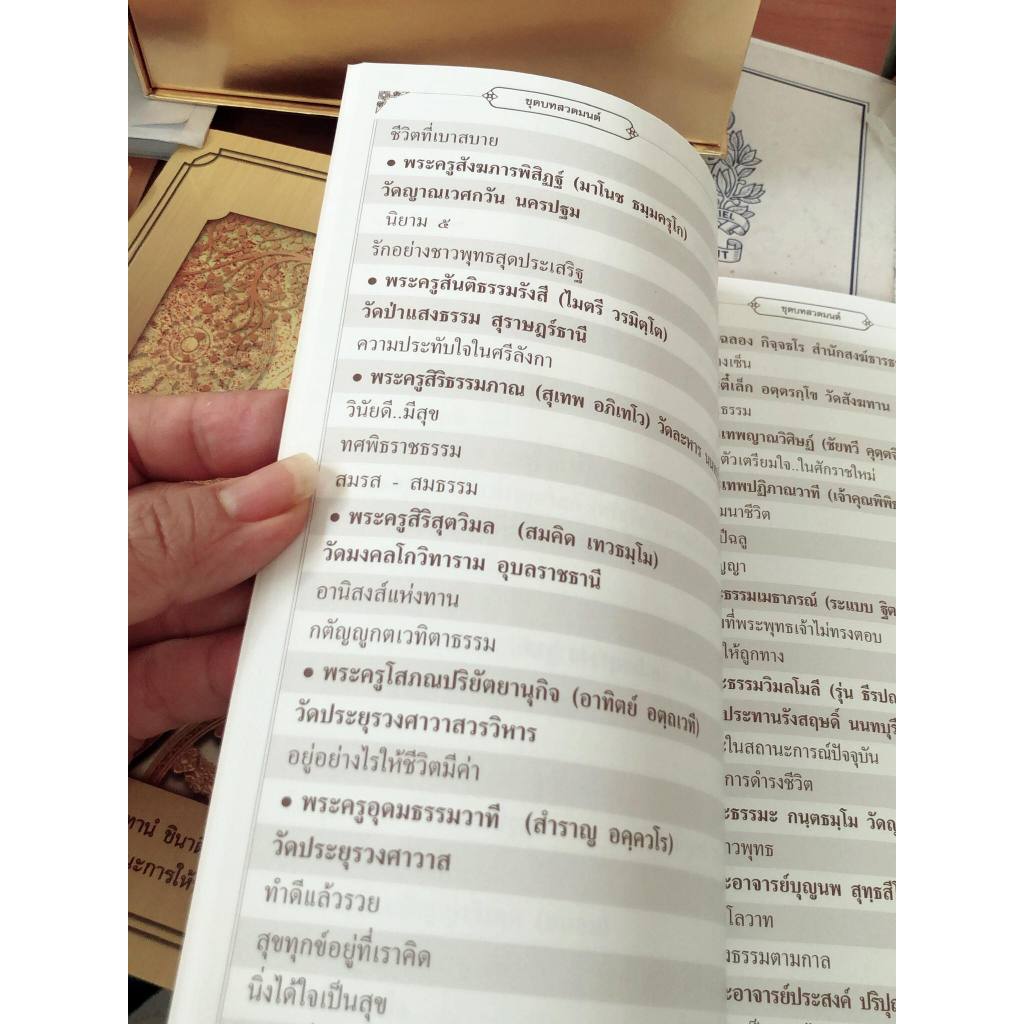 ชุดบทสวดมนต์
ชีวิตที่เบาสบาย
• พระครูสังฆภารพิสิฏฐ์ (มาโนช ธมฺมครุโก)
วัดญาณเวศกวัน นครปฐม
นิยาม ๕
รักอย่างชาวพุทธสุดประเสริฐ
• พระครูสันติธรรมรังสี (ไมตรี วรมิตฺโต)
วัดป่าแสงธรรม สุราษฎร์ธานี
ความประทับใจในศรีลังกา
• พระครูสิริธรรมภาณ (สุเทพ อภิเทโว) วัดละหาร
วินัยดี..มีสุข
ทศพิธราชธรรม
สมรส - สมธรรม
• พระครูสิริสุตวิมล (สมคิด เทวธมฺโม)
วัดมงคลโกวิทาราม อุบลราชธานี
อานิสงส์แห่งทาน
กตัญญูกตเวทิตาธรรม
• พระครูโสภณปริยัตยานุกิจ (อาทิตย์ อตฺถเวที)
วัดประยุรวงศาวาสวรวิหาร
อยู่อย่างไรให้ชีวิตมีค่า
• พระครูอุดมธรรมวาที (สำราญ อคฺควโร)
วัดประยุรวงศาวาส
ทำดีแล้วรวย
สุขทุกข์อยู่ที่เราคิด
นิ่งได้ใจเป็นสุข
ชุดบทสวดมนต์
ฉลอง กิจฺจธโร สำนักสงฆ์ธารธ
งเซ็น
ตี๋เล็ก อตฺตรกฺโข วัดสังฆทาน
ธรรม
เทพญาณวิศิษฏ์ (ชัยทวี คุตฺตจิ
ตัวเตรียมใจ..ในศักราชใหม่
เทพปฏิภาณวาที (เจ้าคุณพิพิธ
ฒนาชีวิต
ปีฉลู
ญญา
ะธรรมเมธาภรณ์ (ระแบบ ฐิต
ที่พระพุทธเจ้าไม่ทรงตอบ
ให้ถูกทาง
ะธรรมวิมลโมลี (รุ่น ธีรปญ
ประทานรังสฤษดิ์ นนทบุรี
ะในสถานะการณ์ปัจจุบัน
การดำรงชีวิต
ะธรรมะ กนฺตธมฺโม วัดญ
าวพุทธ
ะอาจารย์บุญนพ สุทฺธสี
โลวาท
งธรรมตามกาล
ะอาจารย์ประสงค์ ปริปุณ
ทานํ ชินา
นะการให้